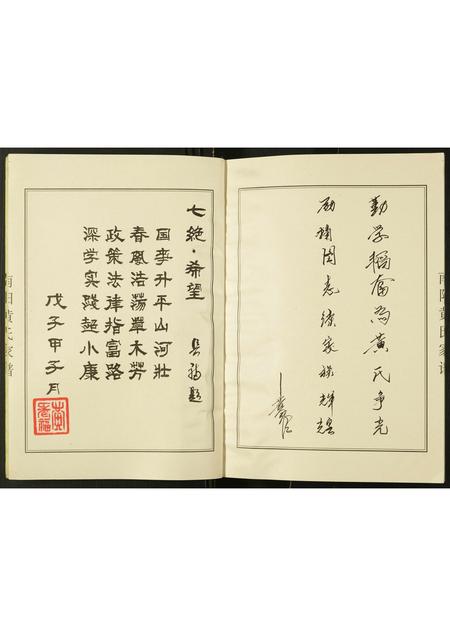 南阳黄氏家谱
勤学奋为黄氏争光
励图志续家族辉煌
七绝·希望 题
国泰升平山河壮
春風浩荡草木芳
政策法律指富路
深学实践超小康
戊子甲子月
南阳黄氏家谱